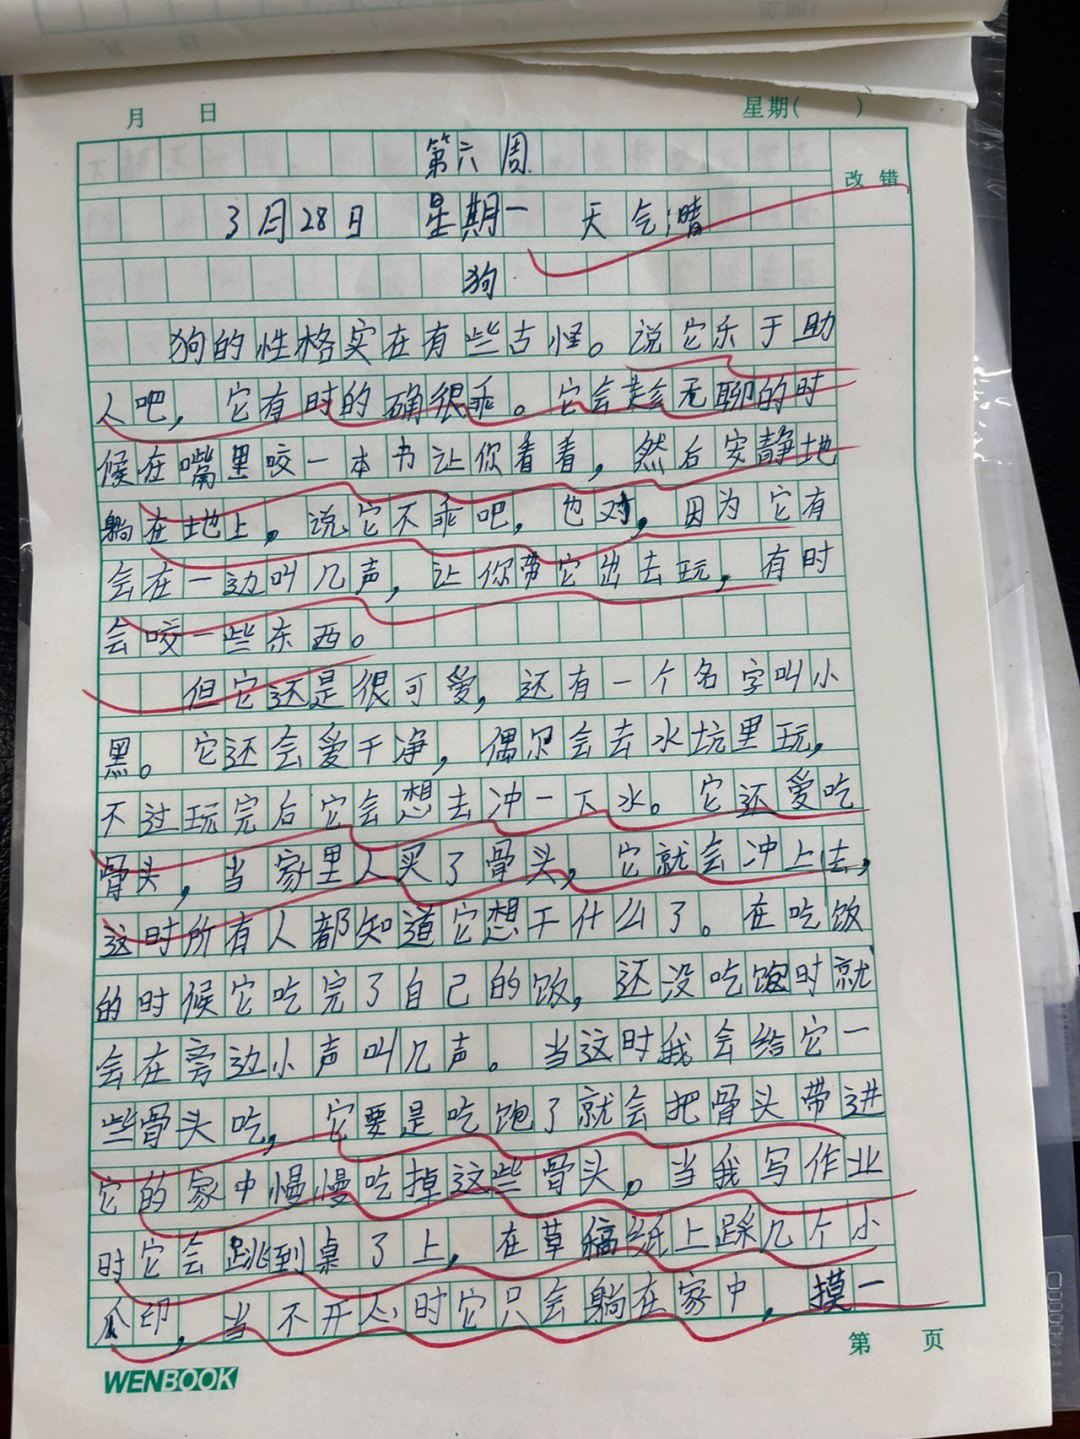 月 日 星期( )
第六周
改错
3月28日 星期一 天气:晴
狗
狗的性格实在有些古怪。说它乐于助
人吧，它有时的确很乖。它会趁无聊的时
候在嘴里咬一本书让你看看，然后安静地
躺在地上。说它不乖吧，也对，因为它有
会在一边叫几声，让你带它出去玩，有时
会咬一些东西。
但它还是很可爱，还有一个名字叫小
黑。它还会爱干净，偶尔会去水坑里玩，
不过玩完后它会想去冲一下水。它还爱吃
骨头，当家里人买了骨头，它就会冲上去，
这时所有人都知道它想干什么了。在吃饭
的时候它吃完了自己的饭，还没吃饱时就
会在旁边小声叫几声。当这时我会给它一
些骨头吃，它要是吃饱了就会把骨头带进
它的家中慢慢吃掉这些骨头。当我写作业
时它会跳到桌了上，在草稿纸上踩几个小
爪印，当不开心时它只会躺在家中，摸一
第 页
WENBOOK